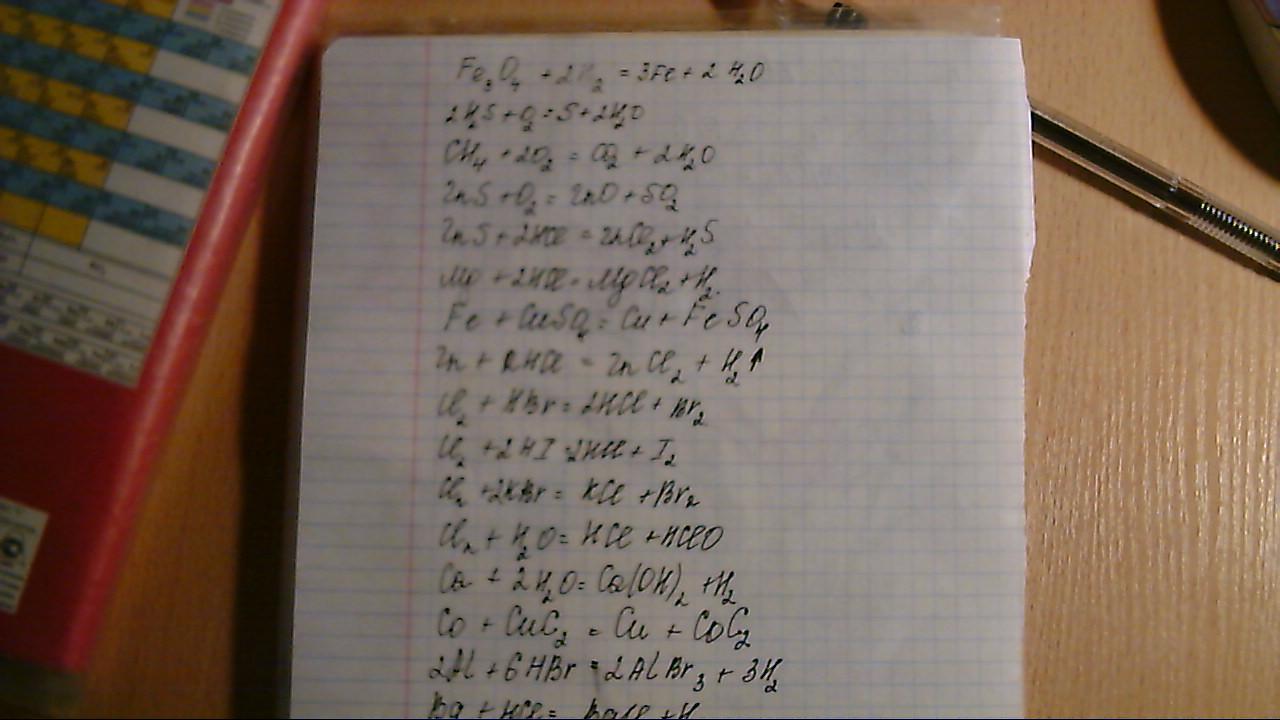 Fe₃O₄ + 2H₂ = 3Fe + 2H₂O
2H₂S + O₂ = S + 2H₂O
CH₄ + 2O₂ = CO₂ + 2H₂O
ZnS + O₂ = ZnO + SO₂
ZnS + 2HCl = ZnCl₂ + H₂S
Mg + 2HCl = MgCl₂ + H₂.
Fe + CuSO₄ = Cu + FeSO₄
Zn + 2HCl = ZnCl₂ + H₂↑
Cl₂ + HBr = 2HCl + Br₂
Cl₂ + 2HI = 2HCl + I₂
Cl₂ + 2KBr = KCl + Br₂
Cl₂ + H₂O = HCl + HClO
Ca + 2H₂O = Ca(OH)₂ + H₂
Co + CuC₂ = Cu + CoC₂
2Al + 6HBr = 2AlBr₃ + 3H₂
Ba + HCl =